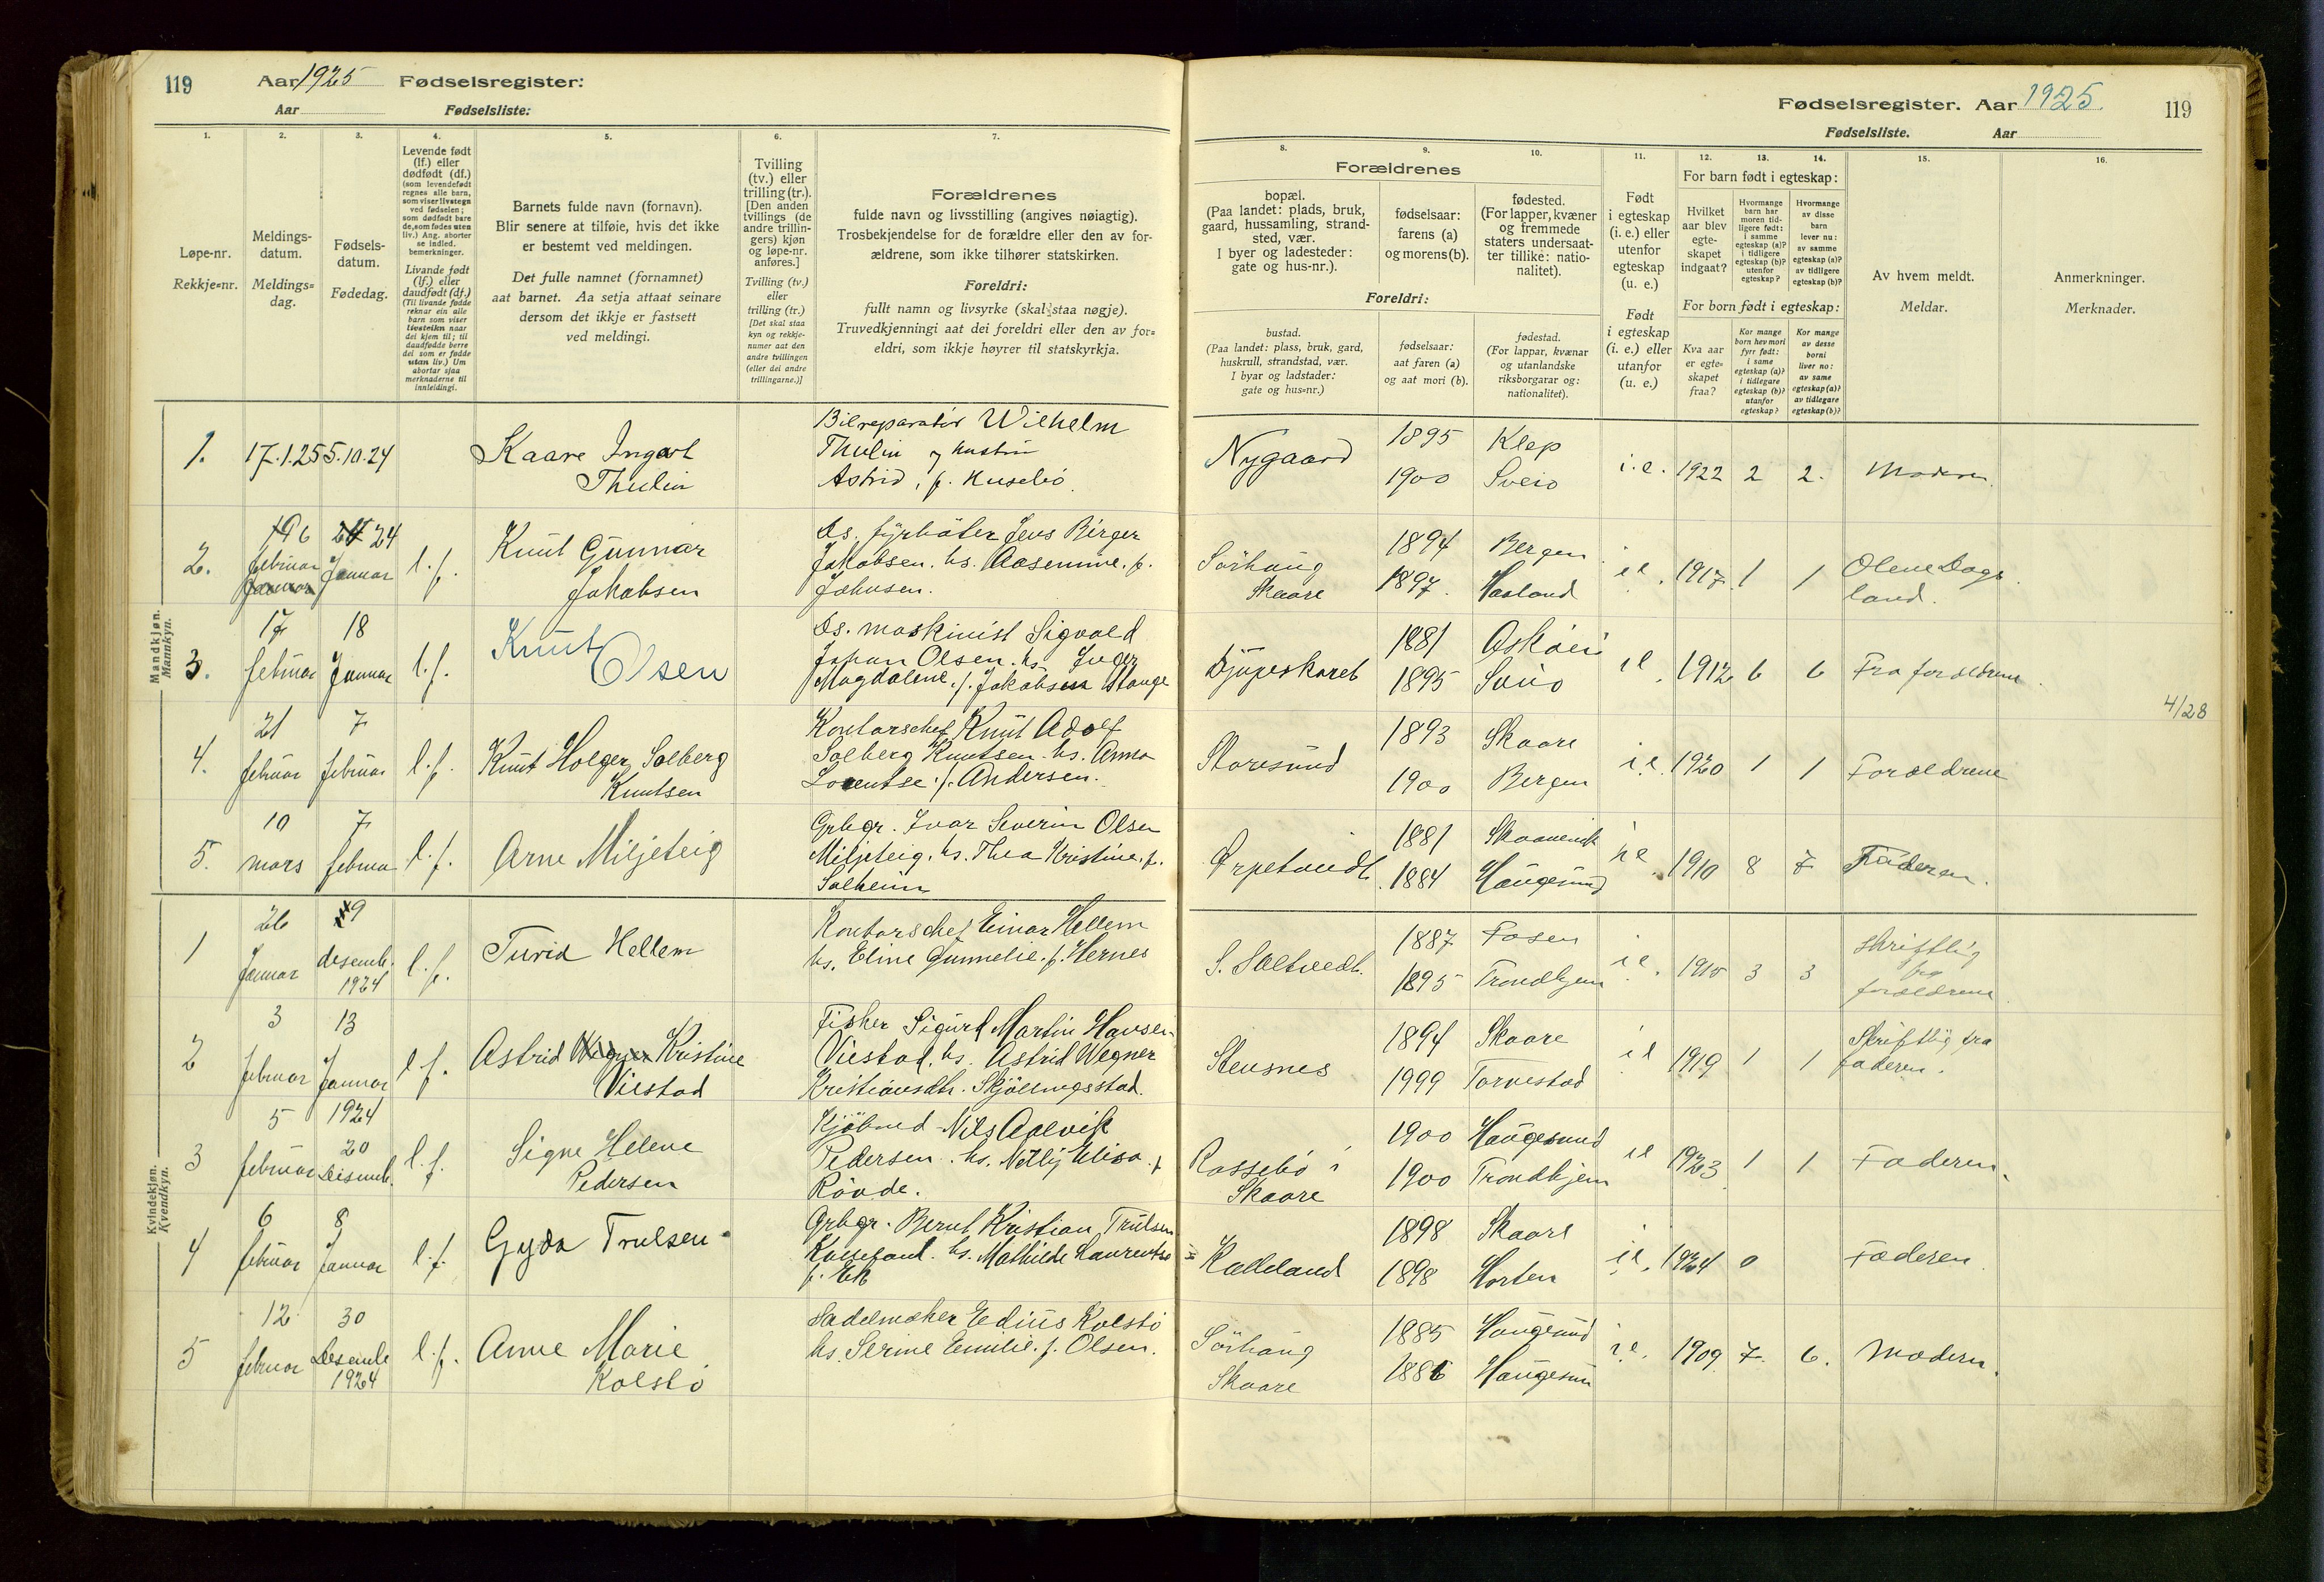 119 Aar 1925 Fødselsregister:
Aar Fødselsliste:
1. 2. 3. 4. 5. 6. 7.
Løpe-nr.
Rekkje=nr.
Meldings-
datum.
Meldings=
dag.
Fødsels-
datum.
Fødedag.
Levende født
(lf.) eller
dødfødt (df.)
(som levendefødt
regnes alle barn,
som viser livstegn
ved fødselen;
som dødfødt bare
de, som fødes uten
liv.) Ang. aborter
se indled.
bemerkninger.
Livande født
(lf.) eller
daudfødt (df.)
(Til livande fødde
reknar ein alle
barn som viser
livsteikn naar
dei kjem til; til
daudfødde berre
dei som er fødde
utan liv.) Um
abortar sjaa
merknaderne til
innleidingi.
Barnets fulde navn (fornavn).
Blir senere at tilføie, hvis det ikke
er bestemt ved meldingen.
Det fulle namnet (fornamnet)
aat barnet. Aa setja attaat seinare
dersom det ikkje er fastsett
ved meldingi.
Tvilling
(tv.) eller
trilling (tr.).
[Den anden
tvillings (de
andre trillin-
gers) kjøn
og løpe-nr.
anføres.]
Tvilling (tv.)
eller
trilling (tr.)
[Det skal staa
kyn og rekkje-
numer aat den
andre tvillingen
(eller dei andre
trillingarne.)]
Forældrenes
fulde navn og livsstilling (angives nøiagtig).
Trosbekjendelse for de forældre eller den av for-
ældrene, som ikke tilhører statskirken.
Foreldri:
fullt namn og livsyrke (skal staa nøgje).
Truvedkjenningi aat dei foreldri eller den av for=
eldri, som ikkje høyrer til statskyrkja.
Mandkjøn.
Mannkyn.
1. 17.1.25 5.10.24 Kaare Ingart
Thulin
Bilreparatør Wilhelm
Thulin og hustru
Astrid, f. Husebö
2. 6 februar 24 Januar l.f. Knut Gunnar
Jakobsen
Ds. fyrböter Jens Birger
Jakobsen. hs. Aasemine. f.
Johnsen.
3. 17 februar 18 Januar l.f. Knut
Olsen
Ds. maskinist Sigvald
Johan Olsen. hs. Inger
Magdalene. f. Jakobsen Stange
4. 21 februar 7 februar l.f. Knut Holger Solberg
Knutsen
Kontorschef Knut Adolf
Solberg Knutsen. hs. Anna
Lorentse f. Andersen.
5. 10 mars 7 februar l.f. Arne Miljeteig
Grbgr. Ivar Severin Olsen
Miljeteig. hs. Thea Kristine. f.
Solheim
Kvindekjøn.
Kvendkyn.
1 26 Januar 9 desemb. 1924 l.f. Turid Hellem
Kontorschef Einar Hellem
hs. Eline Gunnelie. f. Hernes
2 3 februar 13 Januar l.f. Astrid Kristine
Viestad
Fisker Sigurd Martin Hansen
Viestad. hs. Astrid Wegner
Kristiansdtr. Skjöllingsstad.
3 5 februar 1924 20 Desemb. l.f. Signe Helene
Pedersen
Kjöbmd. Nils Aalvik
Pedersen. hs. Netly Elisa f
Röode.
4 6 februar 8 Januar l.f. Gyda Trulsen
Grbgr. Bernt Kristian Trulsen
Kalleland. hs. Mathilde Laurentse
f. Ek
5 12 februar 30 Desemb 1924 l.f. Anne Marie
Kolstö
Sadelmaker Edius Kolstö
hs. Serine Emilie. f. Olsen.
Fødselsregister. Aar 1925. 119
Fødselsliste. Aar
8. 9. 10. 11. 12. 13. 14. 15. 16.
Forældrenes
bopæl.
(Paa landet: plads, bruk,
gaard, hussamling, strand-
sted, vær.
I byer og ladesteder:
gate og hus-nr.).
fødselsaar:
farens (a)
og morens (b).
fødested.
(For lapper, kvæner
og fremmede
staters undersaat-
ter tillike: natio-
nalitet).
Foreldri:
bustad.
(Paa landet: plass, bruk, gard,
huskrull, strandstad, vær.
I byar og ladstader:
gate og hus=nr.)
fødselsaar:
aat faren (a)
og aat mori (b).
fødestad.
(For lappar, kvænar
og utanlandske
riksborgarar og:
nationalitet).
Født
i egteskap
(i. e.) eller
utenfor
egteskap
(u. e.)
Født
i egteskap
(i. e.) eller
utanfor
(u. e.)
For barn født i egteskap:
Hvilket
aar blev
egte-
skapet
indgaat?
Hvormange
barn har
moren tid-
ligere født:
i samme
egteskap (a)?
i tidligere
egteskap (b)?
utenfor
egteskap?
Hvormange
av disse
barn
lever nu:
av samme
egteskap (a)?
av tidligere
egteskap (b)?
For born født i egteskap:
Kva aar
er egte=
skapet
fraa?
Kor mange
born hev mori
fyrr født:
i same
egteskap (a)?
i tidlegare
egteskap (b)?
utanfor
egteskap?
Kor mange
av desse
borni
liver no:
av same
egteskap (a)?
av tidlegare
egteskap (b)?
Av hvem meldt.
Meldar.
Anmerkninger.
Merknader.
Nygaard 1895 Klep
1900 Sveio i.e. 1922 2 2. Moderen
Sörhaug 1894 Bergen
Skaare 1897. Hasland i.e. 1917. 1 1 Olene Dags
land.
Djupeskaret 1881 Asköen
1895 Sveio i.e. 1912 6 6 Fra foreldrene
4/28
Storesund 1893 Skaare
1900 Bergen i.e. 1920 1 1 Foreldrene
Ørpetvedt. 1881 Skaanevik
1884 Haugesund i.e. 1910 8 7 Faderen.
S. Saltvedt. 1887 Fosen
1895 Trondhjem i.e. 1915 3 3 Skriftlig
fra
foreldrene
Stensnes 1894 Skaare
1999 Torvestad i.e. 1919 1 1 Skriftlig fra
faderen.
Rossebö i 1900 Haugesund
Skaare 1900 Trondhjem i.e. 1923 1 1 Faderen.
Kalleland 1898 Skaare
1898 Horten i.e. 1924 0 Faderen
Sörhaug 1885 Haugesund
Skaare 1886 Haugesun i.e. 1909. 7. 6. Modern.